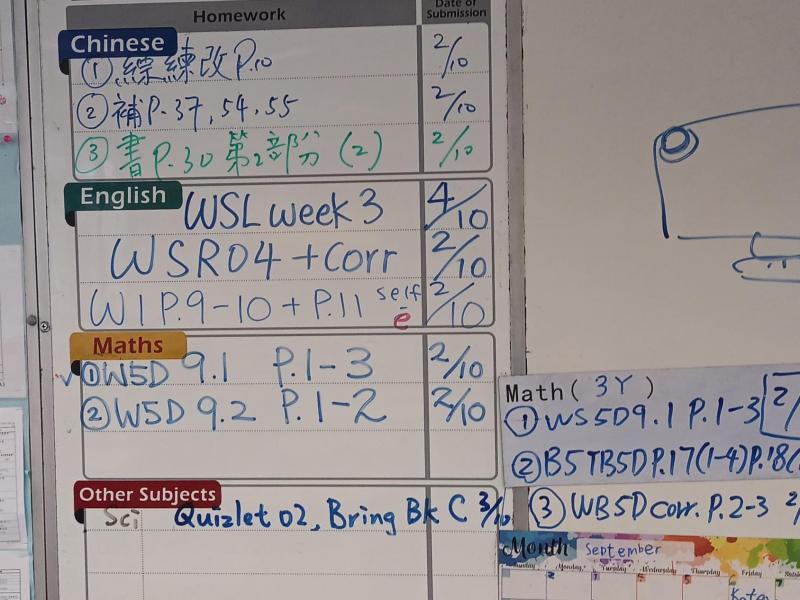 Homework Date of Submission
Chinese
① 綜練改P.10 2/10
② 補P.37, 54, 55 2/10
③ 書P.30 第2部分 (2) 2/10
English
WSL week 3 4/10
WSR04 + Corr 2/10
W1 P.9-10 + P.11 self e 2/10
Maths
① W5D 9.1 P.1-3 2/10
② W5D 9.2 P.1-2 2/10
Other Subjects
Sci Quizlet 02, Bring Bk C 3/10
Math( 3Y )
① WS5D9.1 P.1-3 2/
② B5TB5D P.17(1-4) P.18(
③ WB5D corr. P.2-3 2/
Month September
Monday Tuesday Wednesday Thursday Friday